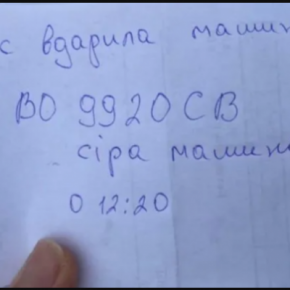 с вдарила машин
ВО 9920 СВ
сіра машин
О 12:20